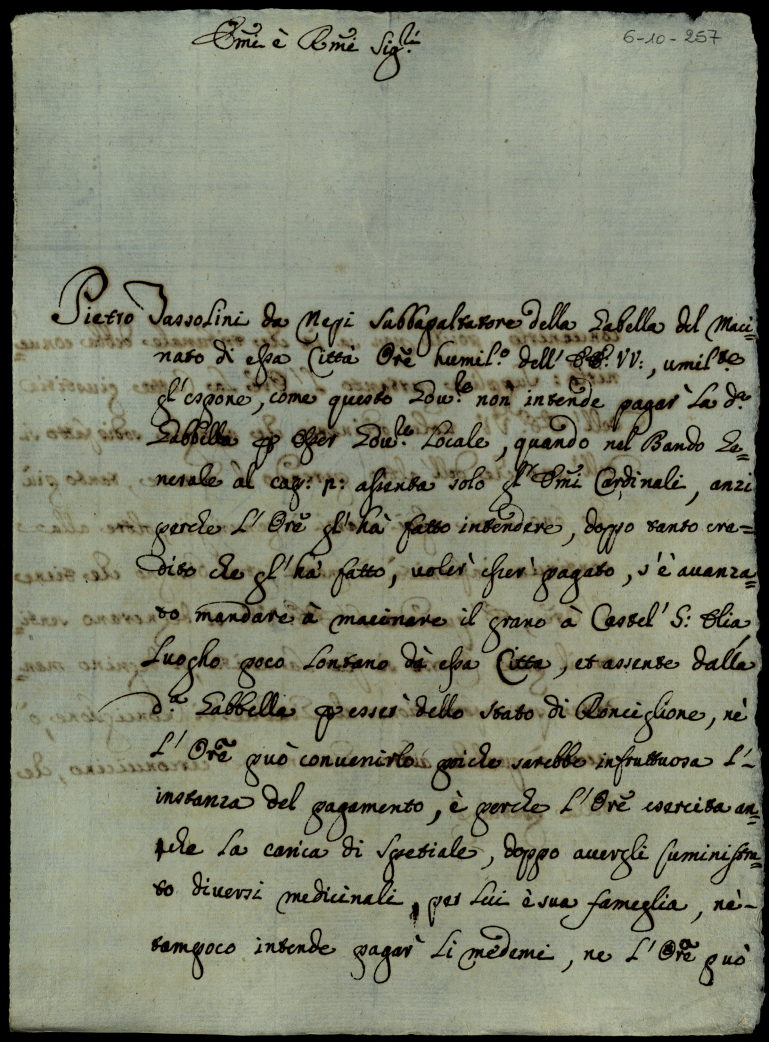 Emi è Rmi Sigri
6-10-257
Pietro Jassolini da Nepi Subbapaltatore della Gabella del Maci-
nato di essa Città Orē humil.º dell' EE. VV:, umil.te
gl'espone, come questo Gov.re non intende pagar' la d.a
Gabbella p esser Gov.re Locale, quando nel Bando Ge-
nerale àl cap: p: assenta solo gl'Emi Cardinali, anzi
perche l'Orē gl'hà fatto intendere, doppo tanto cre-
dito che gl'hà fatto, voler' esser' pagato, s'è avanza-
to mandare à macinare il grano à Castel' S: Elia
Luogho poco lontano dà essa Citta, et assente dalla
d.a Gabbella p esser' dello stato di Ronciglione, nè
l'Orē può convenirlo poiche sarebbe infruttuosa l'-
instanza del pagamento, è perche l'Orē esercita an-
che la carica di Spetiale, doppo avergli suministra-
to diversi medicinali, per lui è sua fameglia, nè-
tampoco intende pagar' li medemi, ne l'Orē può